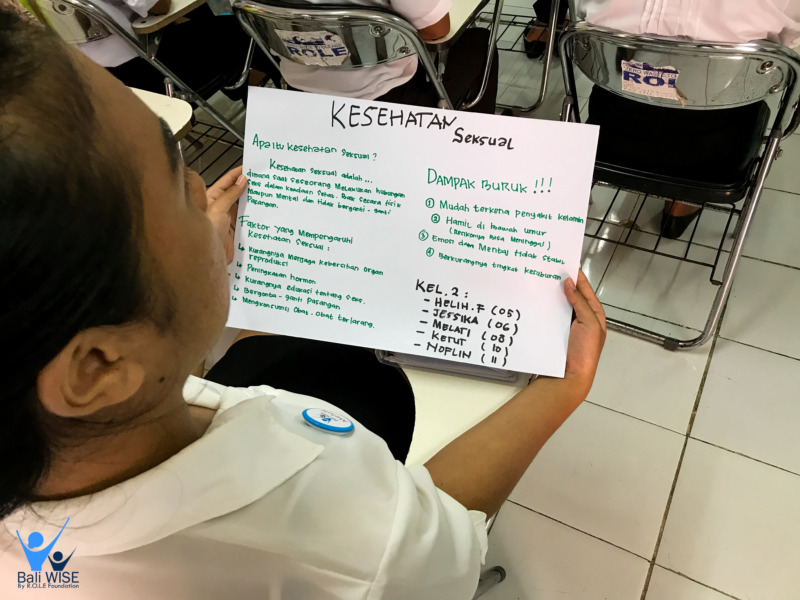 KESEHATAN
SEKSUAL
Apa itu kesehatan seksual ?
Kesehatan seksual adalah...
dimana saat seseorang melakukan hubungan
seks dalam keadaan sehat. Baik secara fisik
maupun mental dan tidak berganti-ganti
Pasangan.
Faktor yang Mempengaruhi
Kesehatan Seksual :
↳ Kurangnya menjaga kebersihan organ
reproduksi
↳ Peningkatan hormon
↳ Kurangnya edukasi tentang seks.
↳ Berganta-ganti Pasangan
↳ Mengkonsumsi obat-obat terlarang.
DAMPAK BURUK !!!
① Mudah terkena penyakit kelamin
② Hamil di bawah umur
③ Emosi dan Mental tidak stabil
④ Berkurangnya tingkat kesuburan
KEL.2 :
- HELIH.F (05)
- JESSIKA (06)
- MELATI (08)
- KETUT (10)
- NOFLIN (11)
ROLE
ROL
Bali WISE
By R.O.L.E Foundation